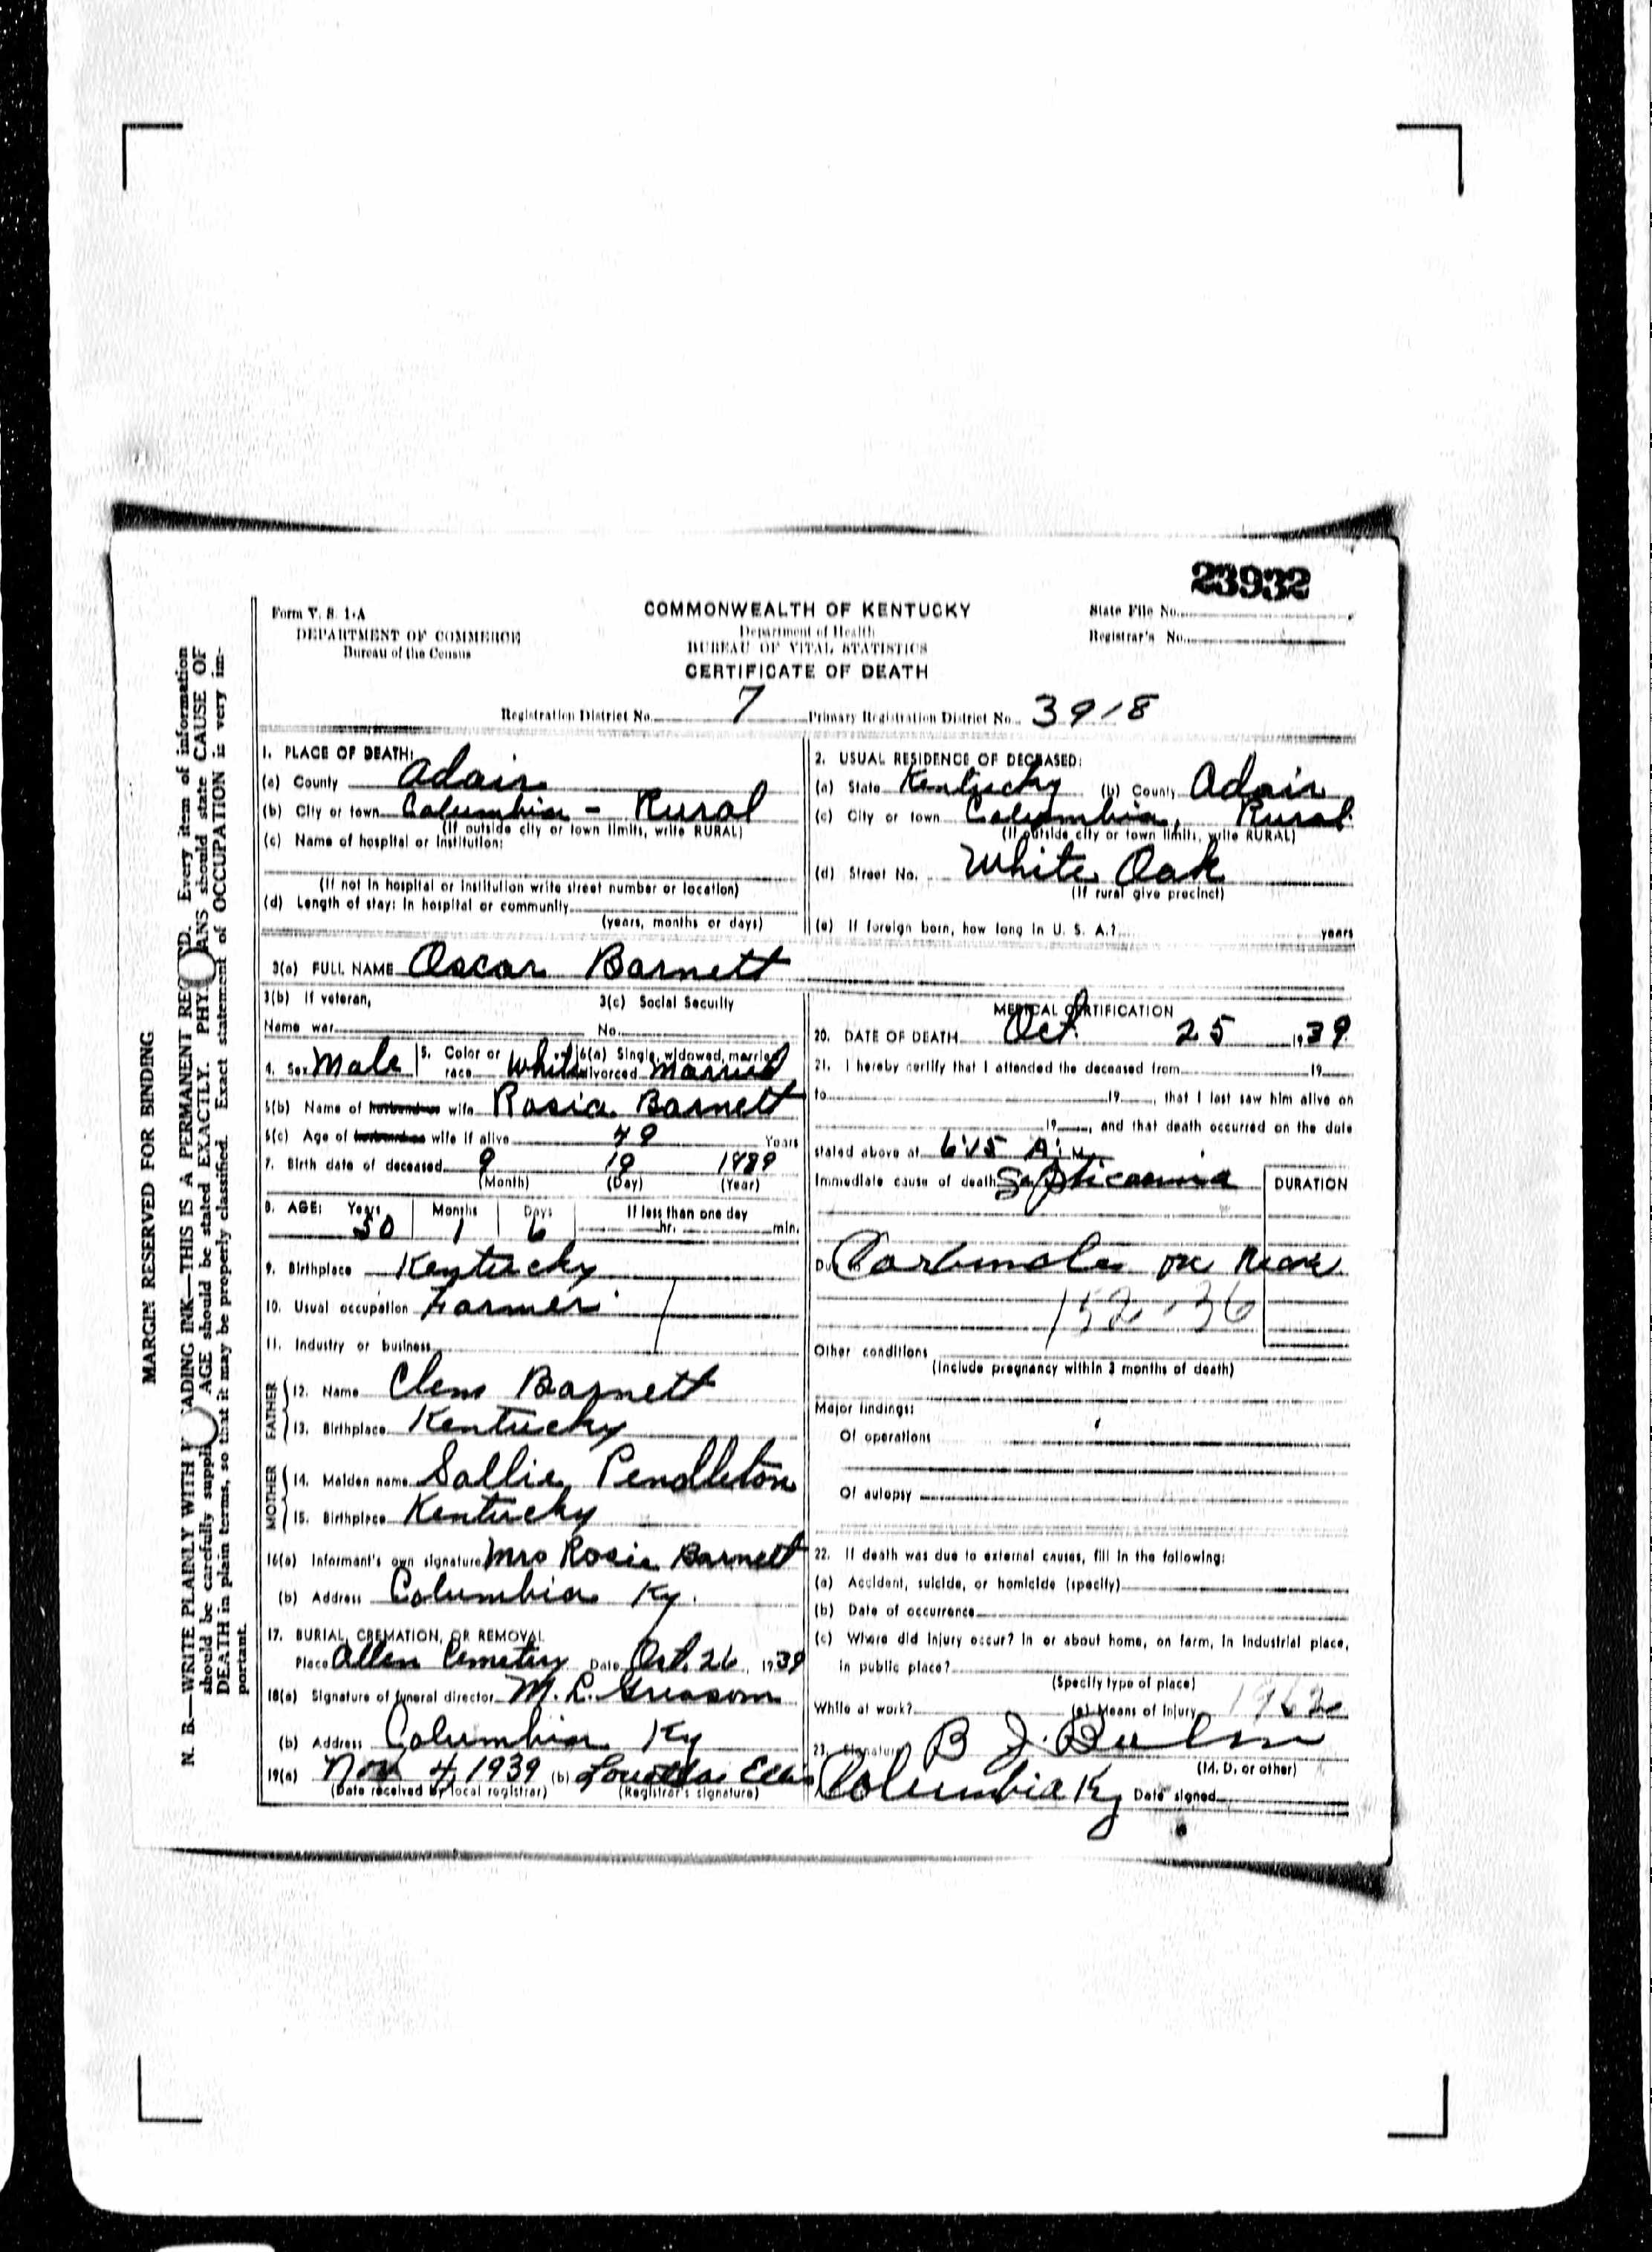 23932
Form V. S. 1-A
DEPARTMENT OF COMMERCE
Bureau of the Census
COMMONWEALTH OF KENTUCKY
Department of Health
BUREAU OF VITAL STATISTICS
CERTIFICATE OF DEATH
State File No.
Registrar's No.
Registration District No. 7 Primary Registration District No. 3918
1. PLACE OF DEATH:
(a) County Adair
(b) City or town Columbia - Rural
(If outside city or town limits, write RURAL)
(c) Name of hospital or institution:
(If not in hospital or institution write street number or location)
(d) Length of stay: In hospital or community
(years, months or days)
2. USUAL RESIDENCE OF DECEASED:
(a) State Kentucky (b) County Adair
(c) City or town Columbia, Rural
(If outside city or town limits, write RURAL)
(d) Street No. White Oak
(If rural give precinct)
(e) If foreign born, how long in U. S. A.? years
3(a) FULL NAME Oscar Barnett
3(b) If veteran, 3(c) Social Security
Name war No.
4. Sex Male 5. Color or race White 6(a) Single, widowed, married, divorced Married
6(b) Name of husband or wife Rosia Barnett
6(c) Age of husband or wife if alive 49 Years
7. Birth date of deceased 9 19 1889
(Month) (Day) (Year)
8. AGE: Years Months Days If less than one day
50 1 6 hr. min.
9. Birthplace Kentucky
10. Usual occupation Farmer
11. Industry or business
FATHER
12. Name Clem Barnett
13. Birthplace Kentucky
MOTHER
14. Maiden name Sallie Pendleton
15. Birthplace Kentucky
16(a) Informant's own signature Mrs Rosia Barnett
(b) Address Columbia Ky.
17. BURIAL, CREMATION, OR REMOVAL
Place Allen Cemetery Date Oct. 26, 1939
18(a) Signature of funeral director M. L. Grissom
(b) Address Columbia Ky
19(a) Nov 4, 1939 (b) Louella Ellis
(Date received by local registrar) (Registrar's signature)
MEDICAL CERTIFICATION
20. DATE OF DEATH Oct 25 1939
21. I hereby certify that I attended the deceased from 19
to 19, that I last saw him alive on
19, and that death occurred on the date
stated above at 6:15 A. M.
Immediate cause of death Septicaemia DURATION
Carbuncle on Neck
152 - 36
Other conditions
(Include pregnancy within 3 months of death)
Major findings:
Of operations
Of autopsy
22. If death was due to external causes, fill in the following:
(a) Accident, suicide, or homicide (specify)
(b) Date of occurrence
(c) Where did injury occur? In or about home, on farm, in industrial place,
in public place?
(Specify type of place)
While at work? (e) Means of Injury
23. Signature B J.
(M. D. or other)
Columbia Ky Date signed
MARGIN RESERVED FOR BINDING
N. B.—WRITE PLAINLY WITH ADING INK—THIS IS A PERMANENT RE D. Every item of information
should be carefully suppli AGE should be stated EXACTLY. PHY ANS should state CAUSE OF
DEATH in plain terms, so that it may be properly classified. Exact statement of OCCUPATION is very im-
portant.